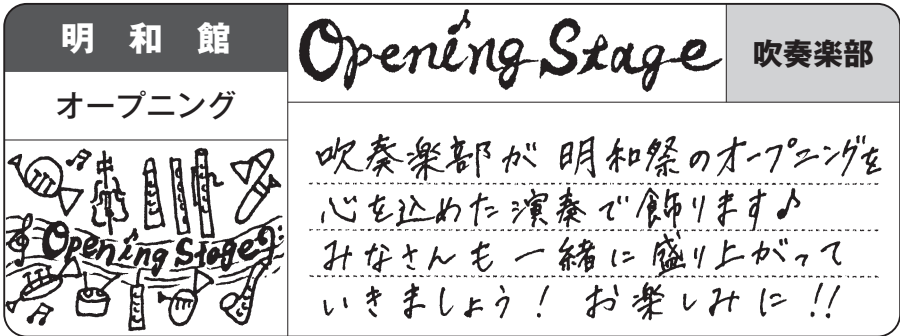 明和館
オープニング
Opening Stage
Opening Stage
吹奏楽部
吹奏楽部が明和祭のオープニングを
心を込めた演奏で飾ります♪
みなさんも一緒に盛り上がって
いきましょう！お楽しみに!!